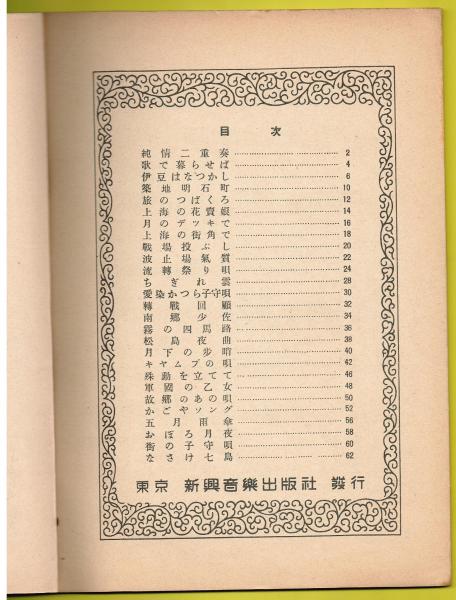 目次
純情二重奏 2
歌で暮らせば 4
伊豆はなつかし 6
築地明石町 10
旅のつばくろ 12
上海の花賣娘 14
月のデッキで 16
上海の街角で 18
戰場投ぶし 20
波止場氣質 22
流轉祭り唄 24
ちぎれ雲 28
愛染かつら子守唄 30
轉戰回顧 32
南郷少佐 34
霧の四馬路 36
松島夜曲 38
月下の歩哨 40
キャムプの唄 42
殊勳を立てて 46
軍國の乙女 48
故郷のあの唄 50
かごやソング 52
五月雨傘 56
おぼろ月夜 58
街の子守唄 60
なさけ七島 62
東京 新興音樂出版社 發行